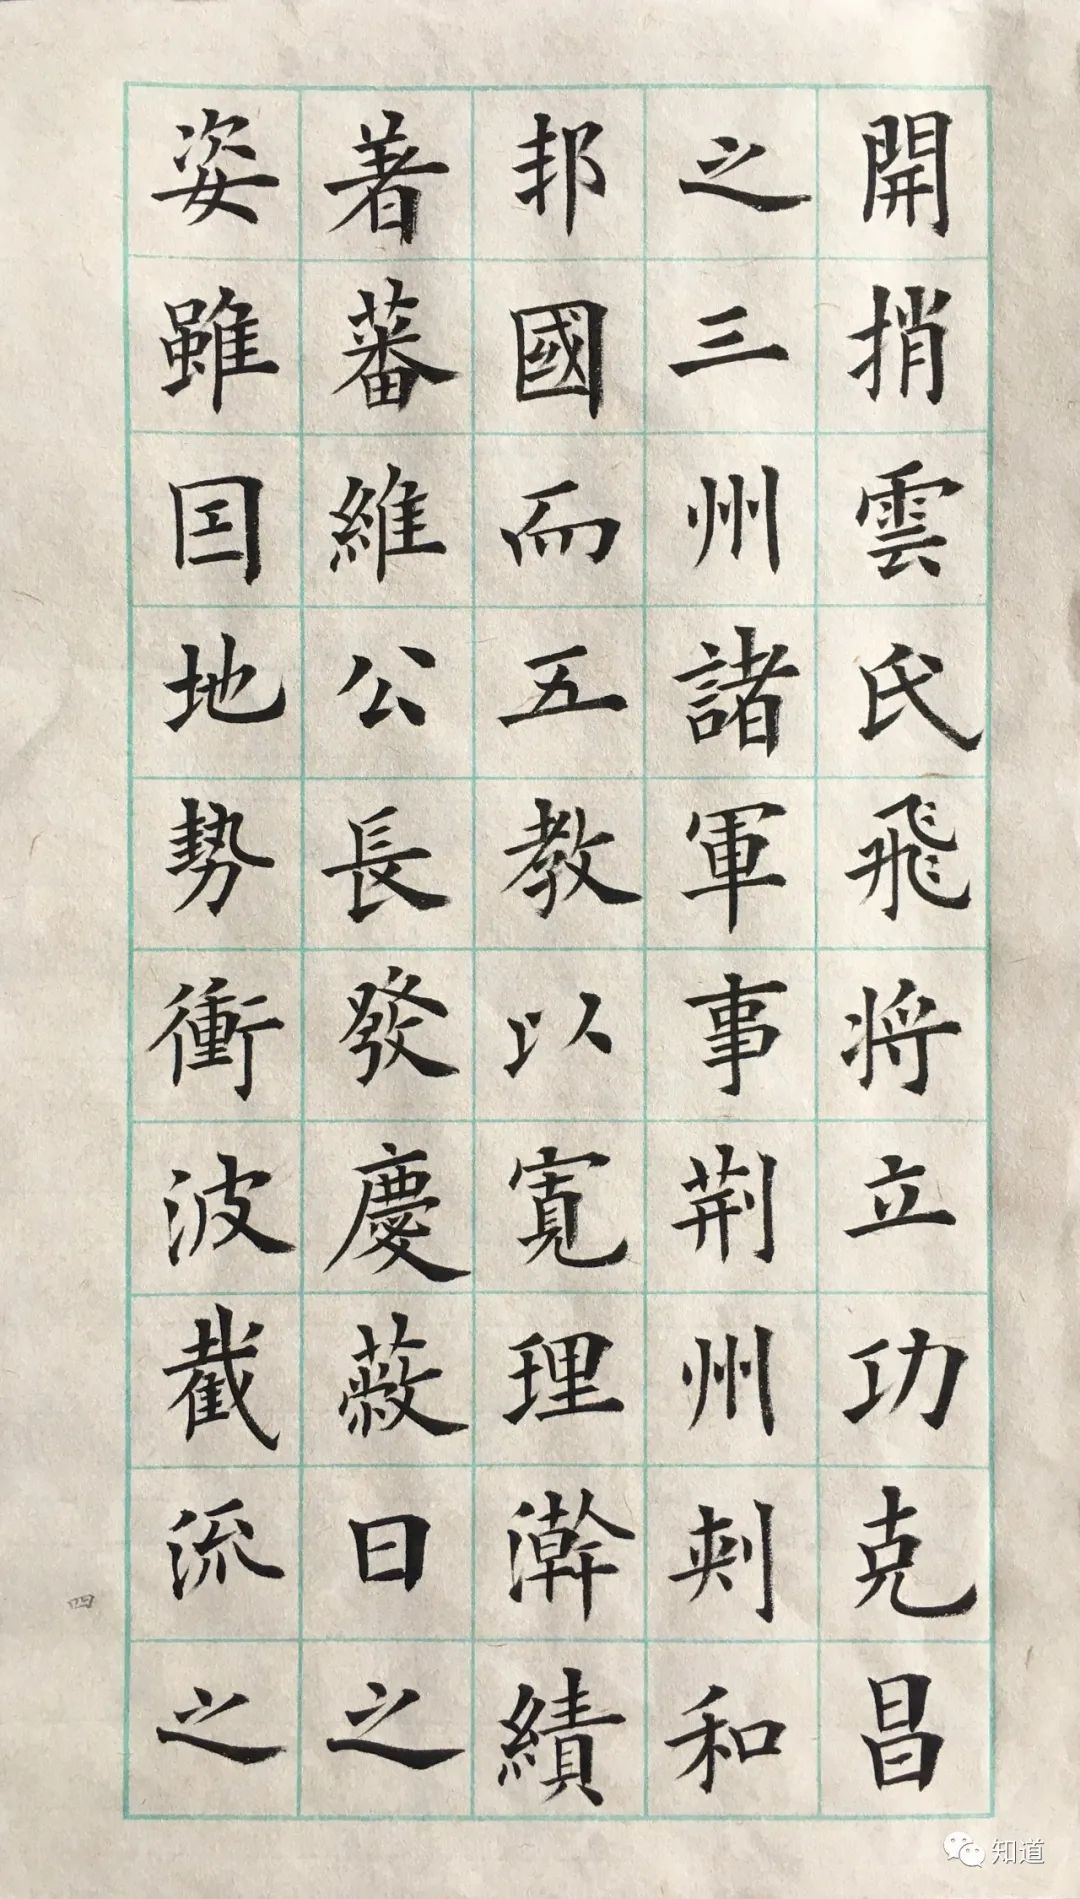 開捎雲氏飛将立功克昌
之三州諸軍事荆州刾和
邦國而五教以寬理澣績
著蕃維公長發慶蔱日之
姿雖囯地勢衝波截流之
四
知道